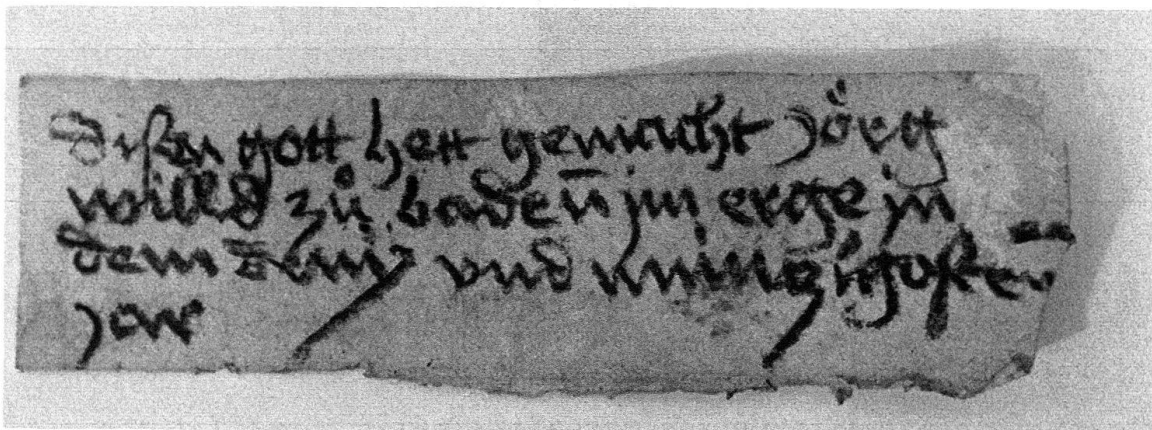 disen gott hett gemacht Jörg
willd zů baden im erge in
dem vnd nüntzigosten
Jare